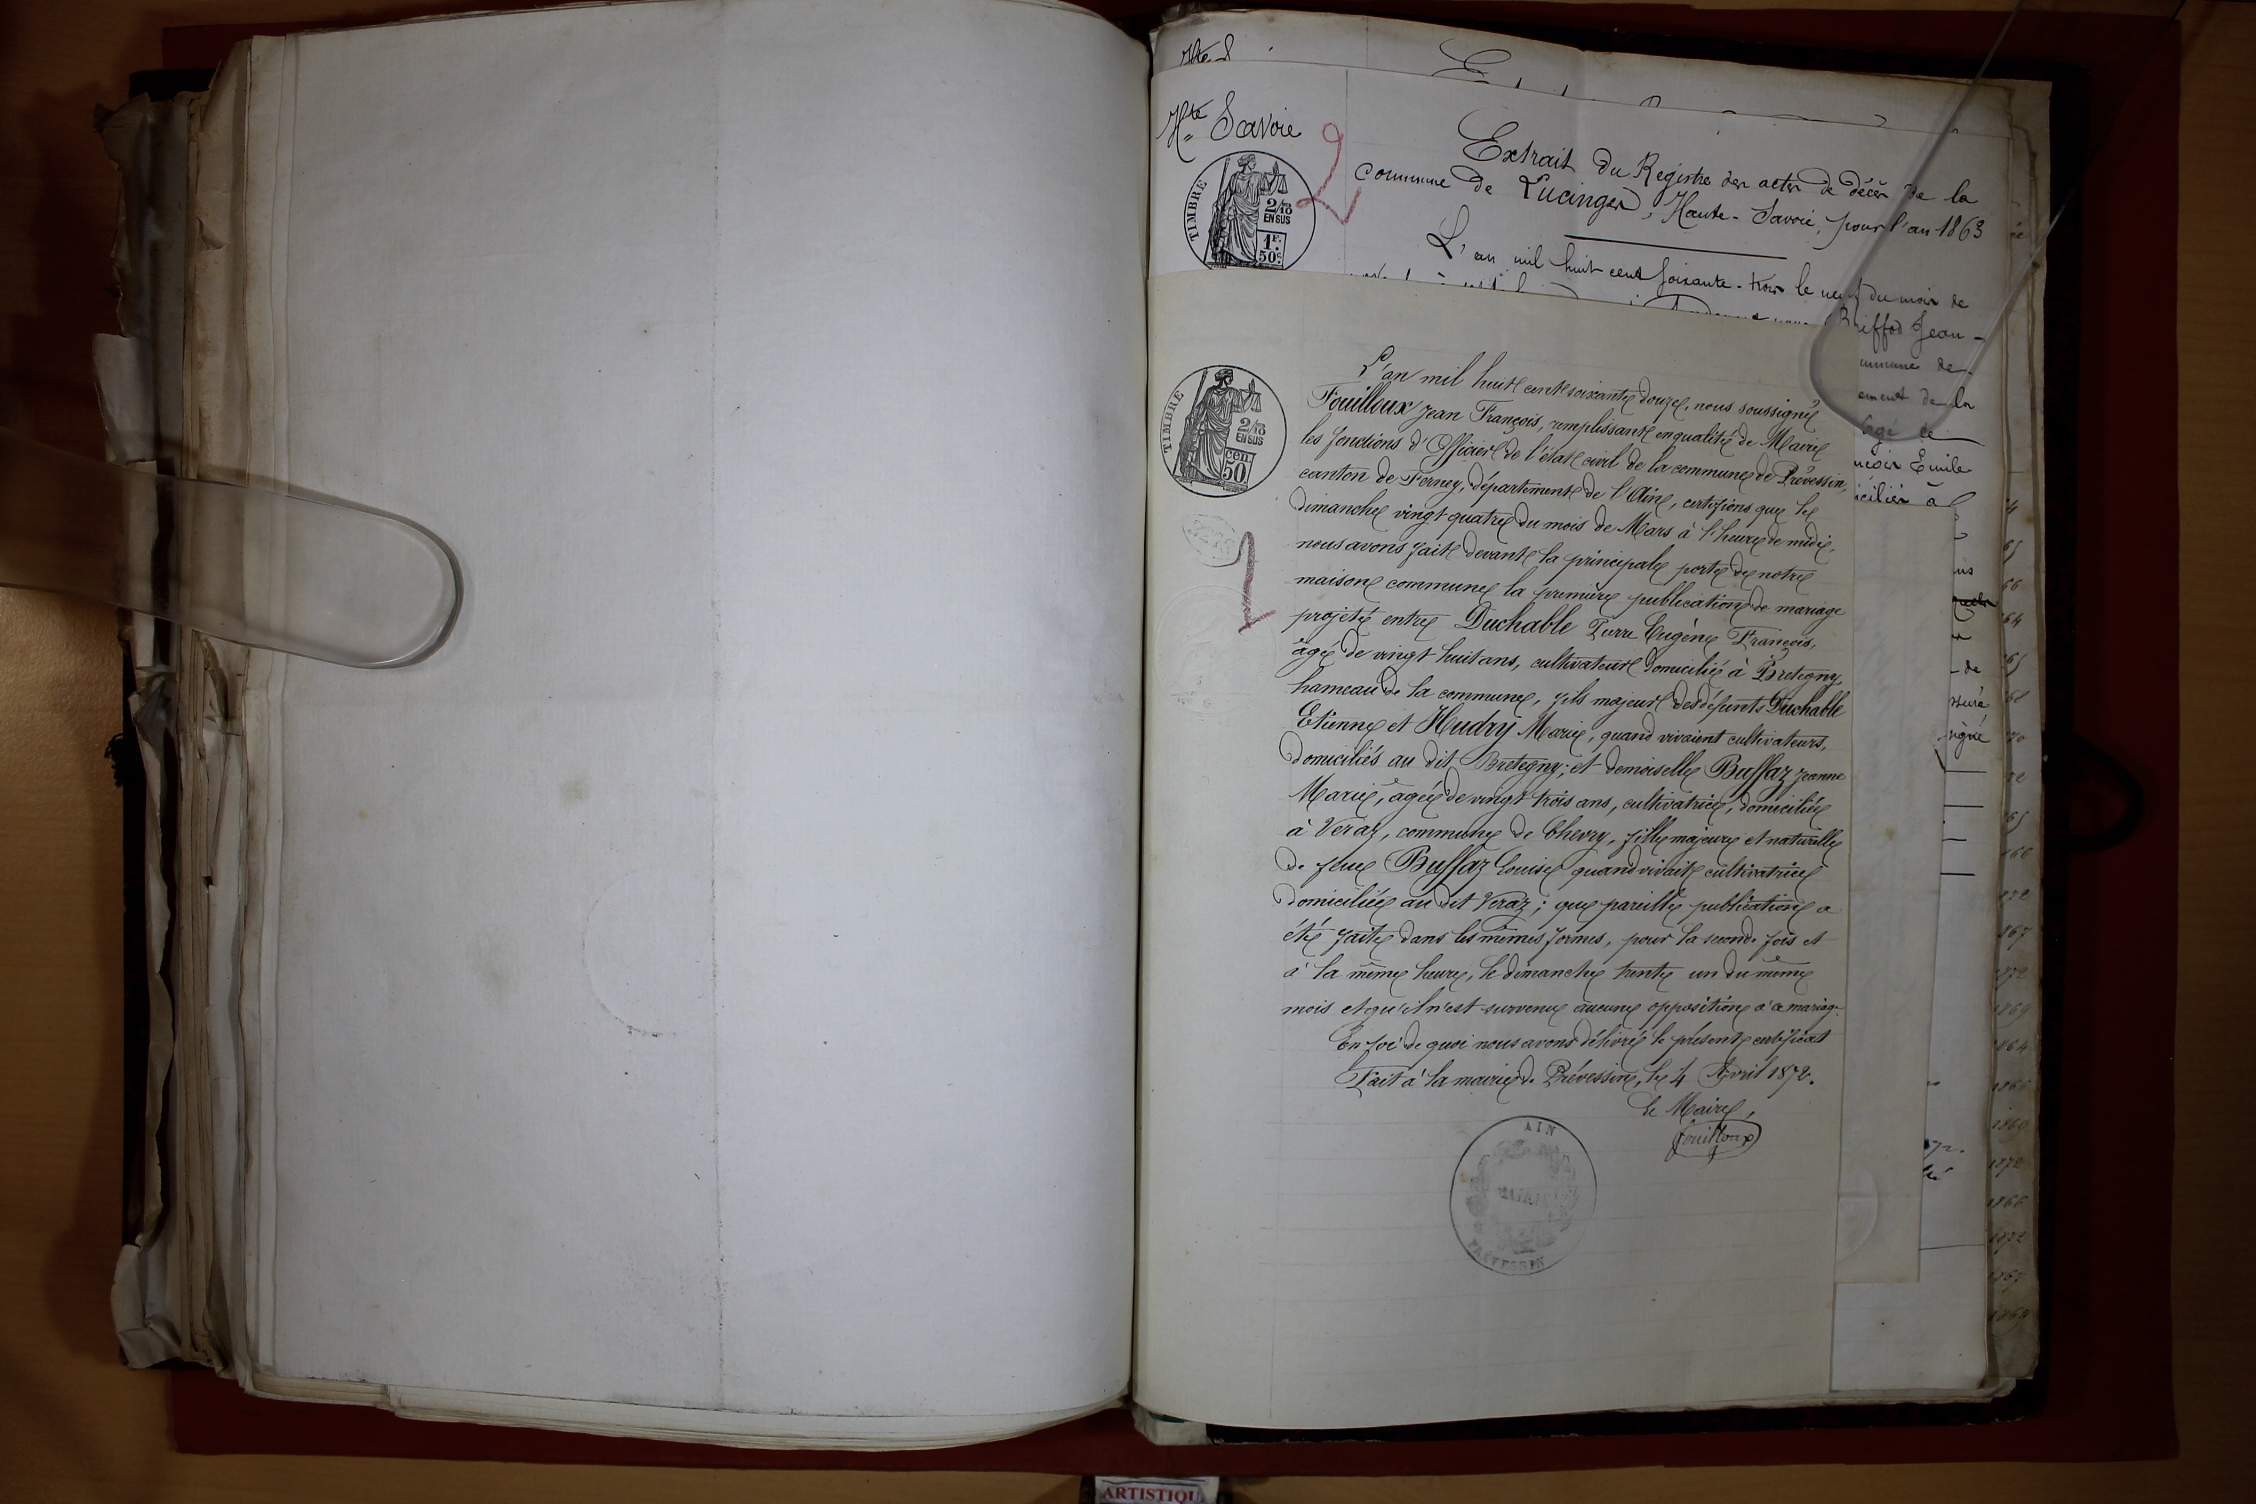 Hte Savoie
TIMBRE
2/10
EN SUS
1F.
50c.
2
Extrait du Registre des actes de décès de la
commune de Lucinges, Haute-Savoie, pour l'an 1863
L'an mil huit cent soixante-trois le neuf du mois de
Briffod Jean-
commune de
ement de la
âgé de
Emile
iciliés à
TIMBRE
2/10
EN SUS
cen.
50
1
L'an mil huit cent soixante douze, nous soussigné
Fouilloux Jean François, remplissant en qualité de Maire
les fonctions d'Officier de l'état civil de la commune de Prévessin,
canton de Ferney, département de l'Ain, certifions que le
dimanche vingt quatre du mois de Mars à l'heure de midi,
nous avons fait devant la principale porte de notre
maison commune la première publication de mariage
projeté entre Duchable Pierre Eugène François,
âgé de vingt huit ans, cultivateur domicilié à Bretegny,
hameau de la commune, fils majeur des défunts Duchable
Etienne et Hudry Marie, quand vivaient cultivateurs,
domiciliés au dit Bretegny; et demoiselle Buffaz Jeanne
Marie, âgée de vingt trois ans, cultivatrice, domiciliée
à Veraz, commune de Chevry, fille majeure et naturelle
de feue Buffaz Louise quand vivait cultivatrice
domiciliée au dit Veraz; que pareille publication a
été faite dans les mêmes formes, pour la seconde fois et
à la même heure, le dimanche trente un du même
mois et qu'il n'est survenu aucune opposition à ce mariage.
En foi de quoi nous avons délivré le présent certificat
Fait à la mairie de Prévessin, le 4 Avril 1872.
Le Maire,
Fouilloux
AIN
PREVESSIN
ARTISTIQU